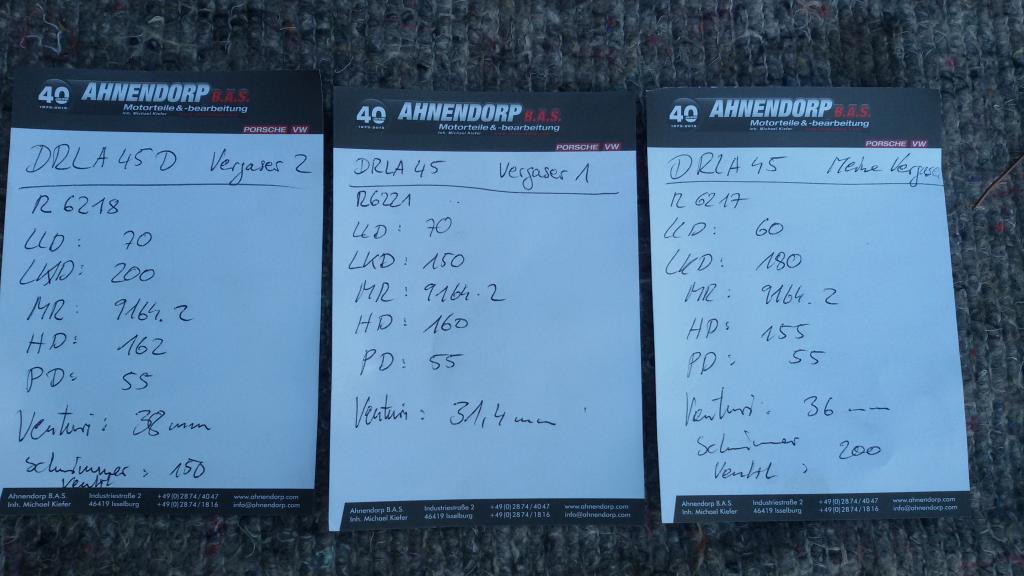 40 AHNENDORP B.A.S.
1975-2015 Motorteile & -bearbeitung
Inh. Michael Kiefer
PORSCHE VW
DRLA 45 D Vergaser 2
R 6218
LLD: 70
LKD: 200
MR: 9164.2
HD: 162
PD: 55
Venturi: 38 mm
Schwimmer : 150
Ventil
Ahnendorp B.A.S. Industriestraße 2 +49(0)2874/4047 www.ahnendorp.com
Inh. Michael Kiefer 46419 Isselburg +49(0)2874/1816 info@ahnendorp.com
40 AHNENDORP B.A.S.
1975-2015 Motorteile & -bearbeitung
Inh. Michael Kiefer
PORSCHE VW
DRLA 45 Vergaser 1
R6221
LLD: 70
LKD: 150
MR: 9164.2
HD: 160
PD: 55
Venturi: 31,4 mm
Ahnendorp B.A.S. Industriestraße 2 +49(0)2874/4047 www.ahnendorp.com
Inh. Michael Kiefer 46419 Isselburg +49(0)2874/1816 info@ahnendorp.com
40 AHNENDORP B.A.S.
1975-2015 Motorteile & -bearbeitung
Inh. Michael Kiefer
PORSCHE VW
DRLA 45 Meine Vergase
R 6217
LLD: 60
LKD: 180
MR: 9164.2
HD: 155
PD: 55
Venturi: 36 mm
Schwimmer 200
Ventil :
Ahnendorp B.A.S. Industriestraße 2 +49(0)2874/4047 www.ahnendorp.com
Inh. Michael Kiefer 46419 Isselburg +49(0)2874/1816 info@ahnendorp.com